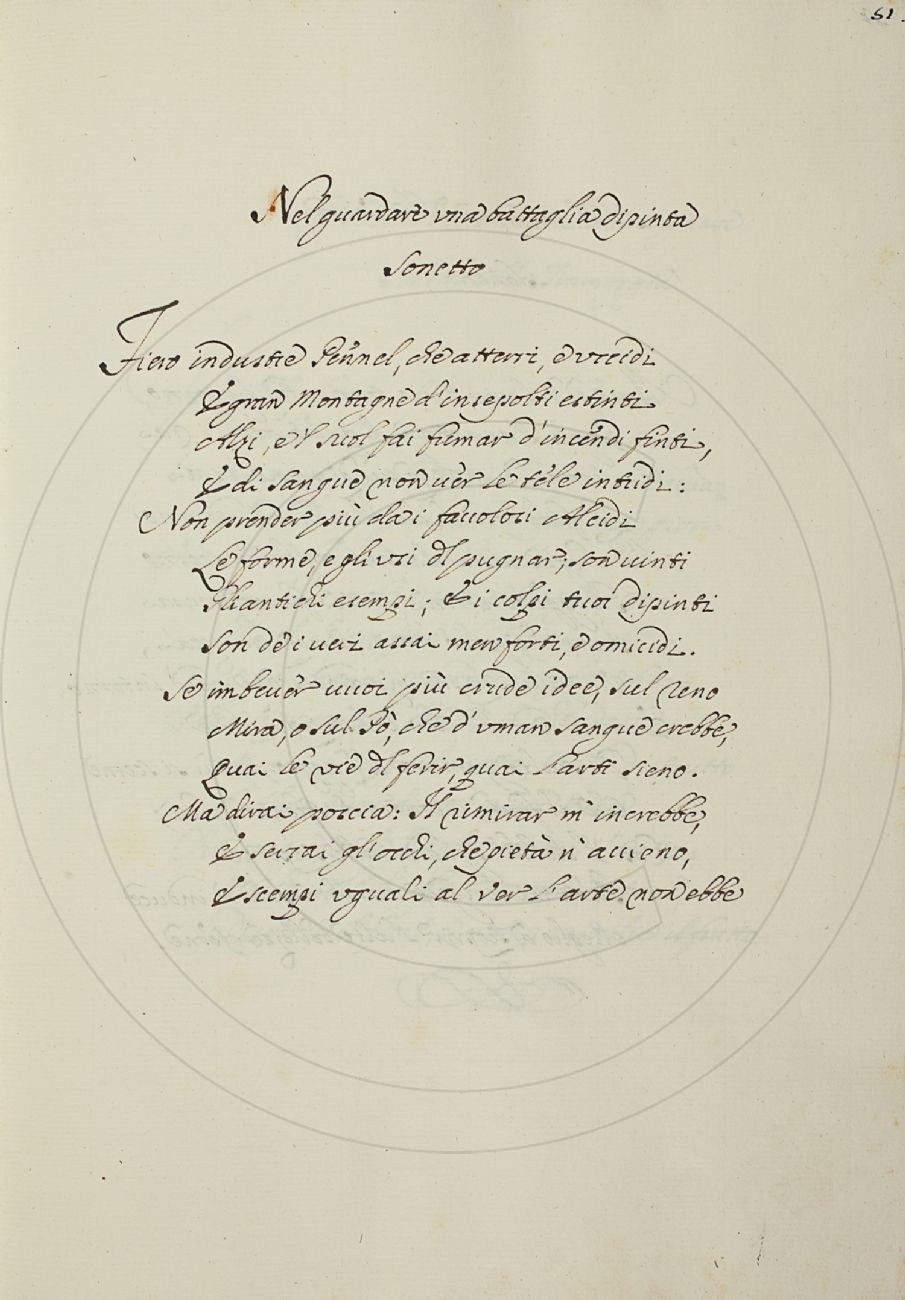 51.
Nel guardare vna battaglia dipinta
Sonetto
Fiero industre Pennel, che atterri, e vccidi
E gran Montagne d'insepolti estinti
Alzi, e 'l suol fai fumar d'incendi finti,
E di sangue non ver le téle intridi:
Non prender più da i favolosi Alcidi
Le forme, e gli vsi del pugnar; son vinti
Gli antichi esempi; E i colpi tuoi dipinti
Son de i veri assai men forti, e omicidi.
Se imbever vuoi più crude idee, sul Reno
Mira, o sul Pò, che d'vman sangue crebbe,
Quai le vie del ferir, quai l'arti sieno.
Ma dirai poscia: Il rimirar m'increbbe,
E serrai gl'occhi, che pietà n'avieno,
E scempi vguali al ver l'arte non ebbe